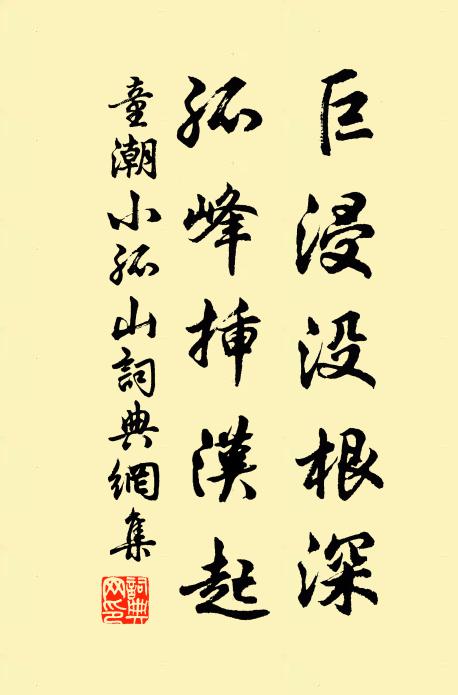 巨浸没根深
孤峰挿漢起
童潮小孤山詞典網集
詞典网印